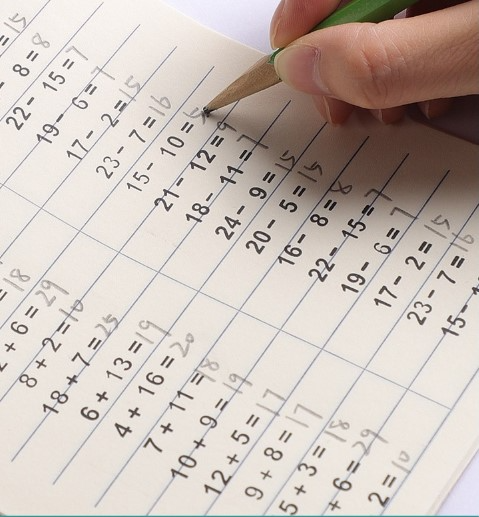 =15
- 8=8
22- 15=7
19- 6=7
17- 2=15
23- 7=16
15- 10=5
21- 12=9
18- 11=7
24- 9=15
20- 5=15
16- 8=8
22- 15=7
19- 6=7
17- 2=15
23- 7=16
15-
=18
+6=29
8+2=10
18+7=25
6+13=19
4+16=20
7+11=18
10+9=19
12+5=17
9+8=17
5+3=18
+6=29
2=10